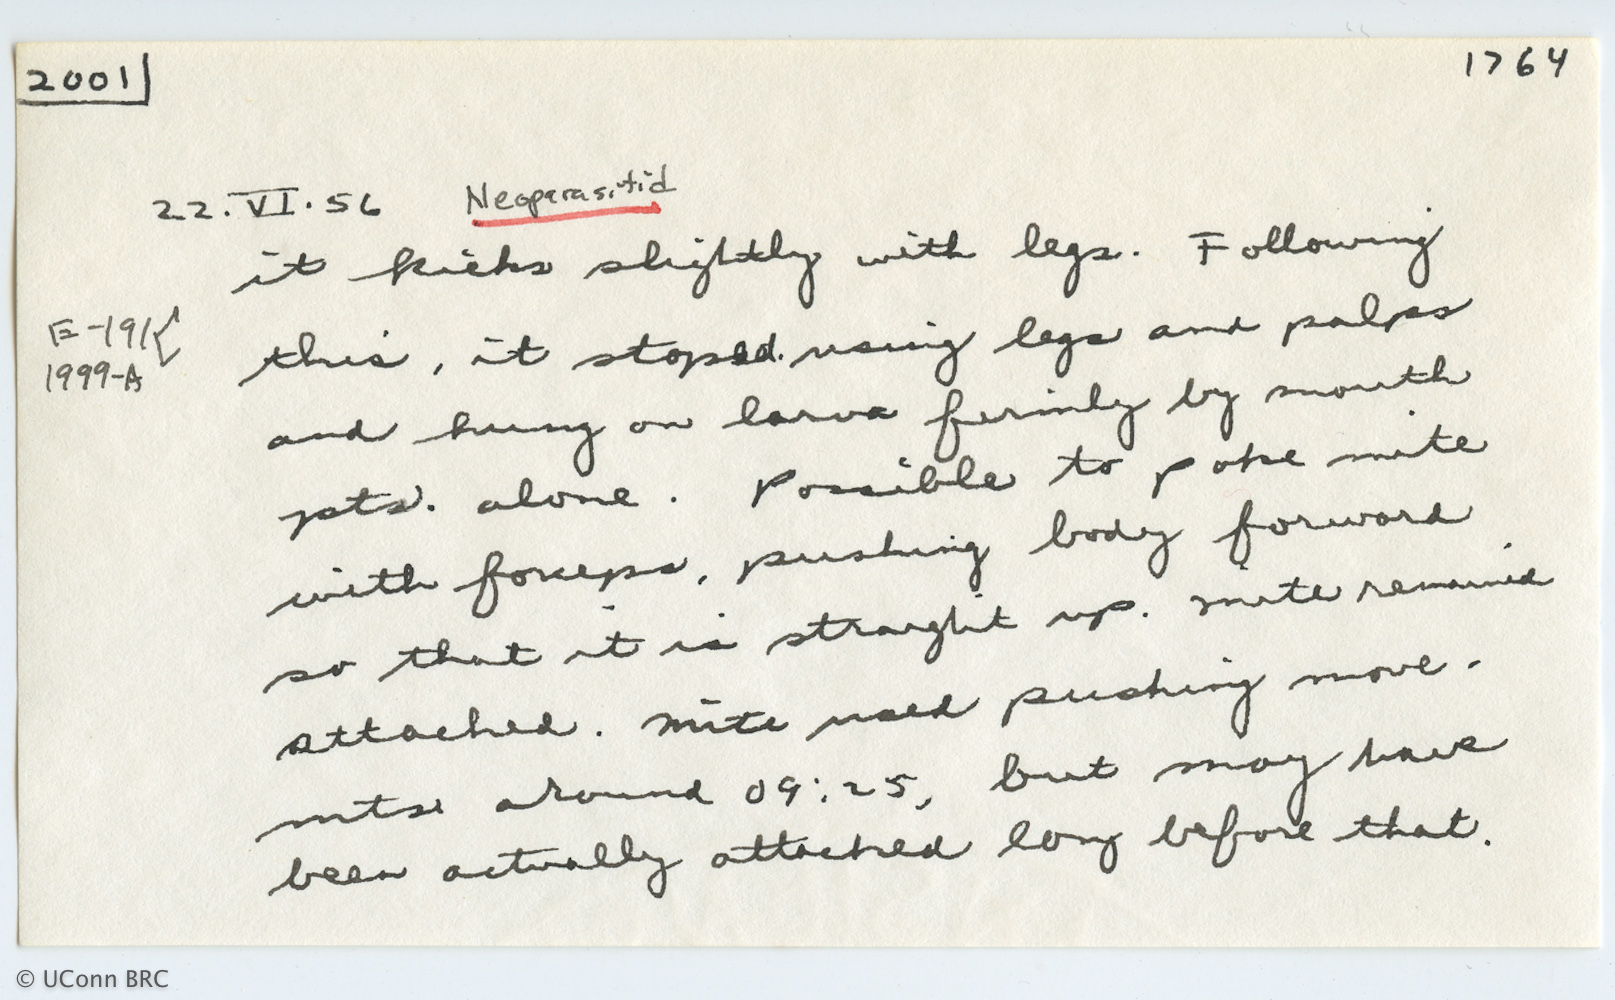 2001 1764
22.VI.56 Neoparasitid
it kicks slightly with legs. Following
E-191
1999-A
this, it stoped using legs and palps
and hung on larva firmly by mouth
pts. alone. Possible to poke mite
with forceps, pushing body forward
so that it is straight up. Mite remained
attached. Mite used pushing move-
mts. around 09:25, but may have
been actually attached long before that.
© UConn BRC